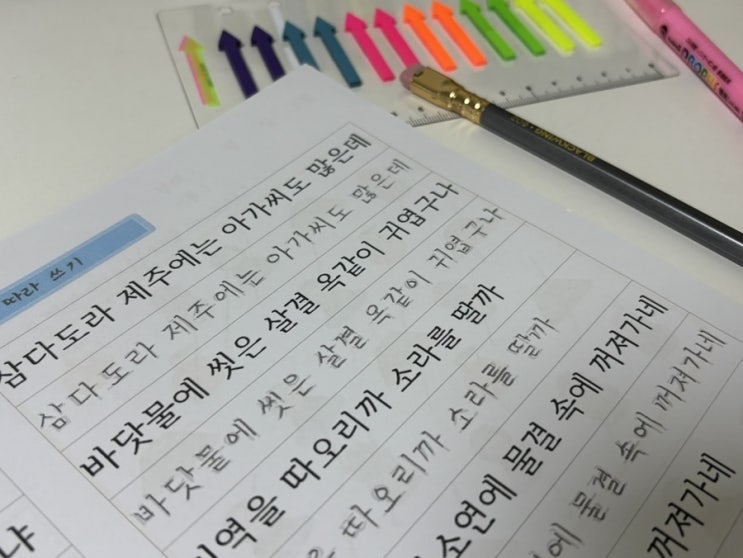 따라 쓰기
삼다도라 제주에는 아가씨도 많은데
삼다도라 제주에는 아가씨도 많은데
바닷물에 씻은 살결 옥같이 귀엽구나
바닷물에 씻은 살결 옥같이 귀엽구나
역을 따오리까 소라를 딸까
따오리까 소라를 딸까
소연에 물결 속에 꺼져가네
에 물결 속에 꺼져가네
꺼져가네
냐
BLACKWING 602